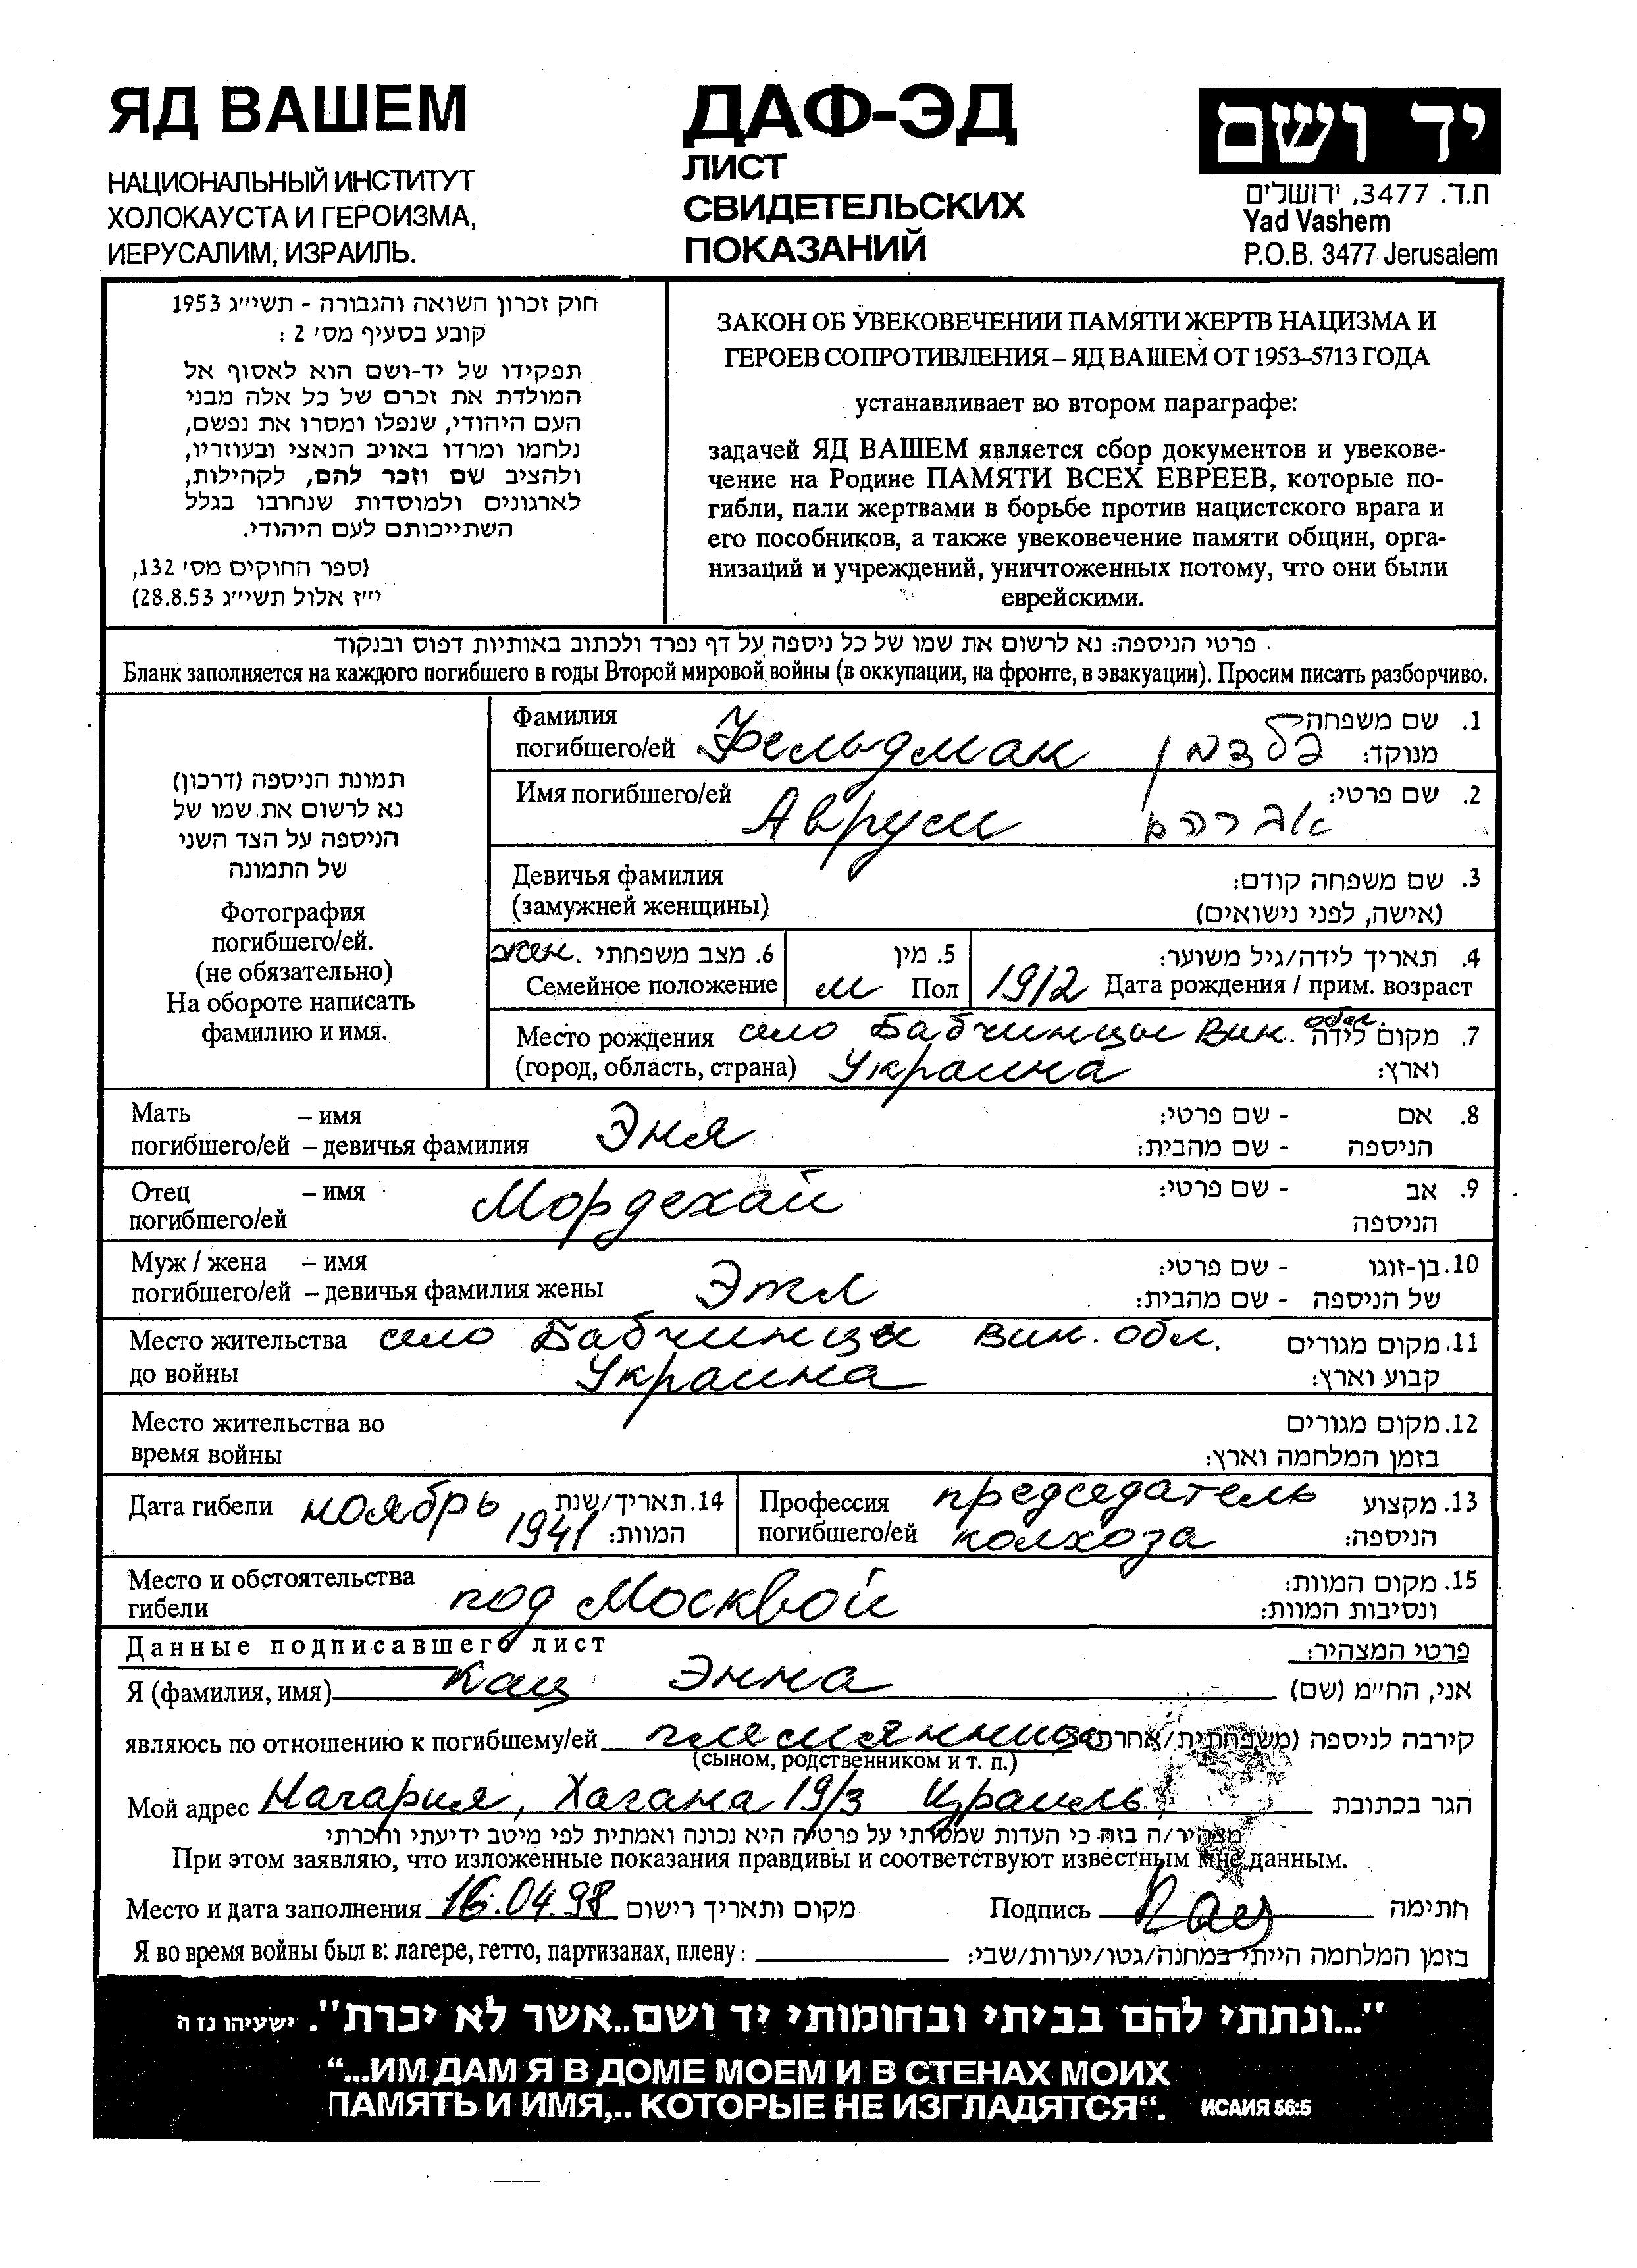 ЯД ВАШЕМ
НАЦИОНАЛЬНЫЙ ИНСТИТУТ
ХОЛОКАУСТА И ГЕРОИЗМА,
ИЕРУСАЛИМ, ИЗРАИЛЬ.
ДАФ-ЭД
ЛИСТ
СВИДЕТЕЛЬСКИХ
ПОКАЗАНИЙ
יד ושם
ת.ד. 3477, ירושלים
Yad Vashem
P.O.B. 3477 Jerusalem
חוק זכרון השואה והגבורה - תשי״ג 1953
קובע בסעיף מס׳ 2 :
תפקידו של יד-ושם הוא לאסוף אל
המולדת את זכרם של כל אלה מבני
העם היהודי, שנפלו ומסרו את נפשם,
נלחמו ומרדו באויב הנאצי ובעוזריו,
ולהציב שם וזכר להם, לקהילות,
לארגונים ולמוסדות שנחרבו בגלל
השתייכותם לעם היהודי.
(ספר החוקים מס׳ 132,
י״ז אלול תשי״ג 28.8.53)
ЗАКОН ОБ УВЕКОВЕЧЕНИИ ПАМЯТИ ЖЕРТВ НАЦИЗМА И
ГЕРОЕВ СОПРОТИВЛЕНИЯ – ЯД ВАШЕМ ОТ 1953–5713 ГОДА
устанавливает во втором параграфе:
задачей ЯД ВАШЕМ является сбор документов и увекове-
чение на Родине ПАМЯТИ ВСЕХ ЕВРЕЕВ, которые по-
гибли, пали жертвами в борьбе против нацистского врага и
его пособников, а также увековечение памяти общин, орга-
низаций и учреждений, уничтоженных потому, что они были
еврейскими.
פרטי הניספה: נא לרשום את שמו של כל ניספה על דף נפרד ולכתוב באותיות דפוס ובנקוד
Бланк заполняется на каждого погибшего в годы Второй мировой войны (в оккупации, на фронте, в эвакуации). Просим писать разборчиво.
תמונת הניספה (דרכון)
נא לרשום את שמו של
הניספה על הצד השני
של התמונה
Фотография
погибшего/ей.
(не обязательно)
На обороте написать
фамилию и имя.
Фамилия 1. שם משפחה
погибшего/ей Фельдман פלדמן מנוקד:
Имя погибшего/ей 2. שם פרטי:
Аврум אברהם
Девичья фамилия 3. שם משפחה קודם:
(замужней женщины) (אישה, לפני נישואים)
жен. 6. מצב משפחתי 5. מין 4. תאריך לידה/גיל משוער:
Семейное положение м Пол 1912 Дата рождения / прим. возраст
Место рождения село Бабчинцы Вин. обл. 7. מקום לידה
(город, область, страна) Украина וארץ:
Мать – имя Эня 8. אם - שם פרטי:
погибшего/ей – девичья фамилия הניספה - שם מהבית:
Отец – имя Мордехай 9. אב - שם פרטי:
погибшего/ей הניספה
Муж / жена – имя Этл 10. בן-זוגו - שם פרטי:
погибшего/ей – девичья фамилия жены של הניספה - שם מהבית:
Место жительства село Бабчинцы Вин. обл. 11. מקום מגורים
до войны Украина קבוע וארץ:
Место жительства во 12. מקום מגורים
время войны בזמן המלחמה וארץ:
Дата гибели ноябрь 14. תאריך/שנת
1941 המוות:
Профессия председатель 13. מקצוע
погибшего/ей колхоза הניספה:
Место и обстоятельства под Москвой 15. מקום המוות:
гибели ונסיבות המוות:
Данные подписавшего лист פרטי המצהיר:
Я (фамилия, имя) Кац Энна אני, החי״מ (שם)
являюсь по отношению к погибшему/ей племянница קירבה לניספה (משפחתית/אחרת)
(сыном, родственником и т. п.)
Мой адрес Нагария, Хагана 19/3 Израиль הגר בכתובת
מצהיר/ה בזה כי העדות שמסרתי על פרטיה היא נכונה ואמתית לפי מיטב ידיעתי והכרתי
При этом заявляю, что изложенные показания правдивы и соответствуют известным мне данным.
Место и дата заполнения 16.04.98 מקום ותאריך רישום Подпись Кац חתימה
Я во время войны был в: лагере, гетто, партизанах, плену: בזמן המלחמה הייתי במחנה/גטו/יערות/שבי:
"...ונתתי להם בביתי ובחומותי יד ושם..אשר לא יכרת". ישעיהו נו ה
“...ИМ ДАМ Я В ДОМЕ МОЕМ И В СТЕНАХ МОИХ
ПАМЯТЬ И ИМЯ,.. КОТОРЫЕ НЕ ИЗГЛАДЯТСЯ“. ИСАИЯ 56:5